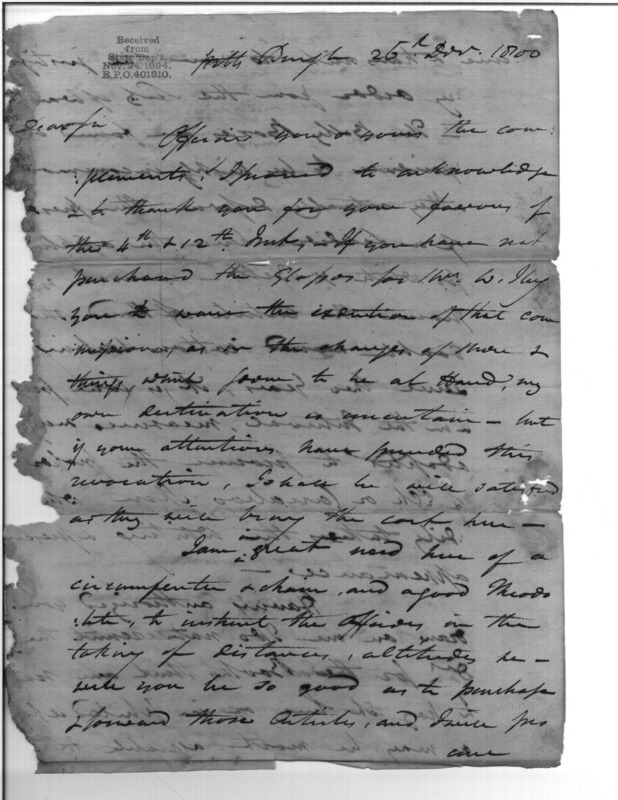 Received
from
State Dep't.
Nov. 24, 1894.
R.P.O. 401810.
pitts Burgh 26th Decr. 1800
Dear Sir
Offering you & yours the com:
:plements. I proceed to acknowledge
& to thank you for your favors of
the 4th. & 12th. Inst. – If you have not
purchased the Glasses for Mr. W.
you will wave the execution of that com
mission, as in the changes of Men &
things which seem to be at Hand, my
own destination is uncertain – but
if your attentions have preceded this
revocation, I shall be well satisfied
as they will bring the cost here –
I am in great need here of a
circumferenter & chain, and a good Theodo
:lite, to instruct the Officers in the
taking of distances, altitudes &c –
will you be so good as to purchase
& forward those Articles, and I will pro
cure